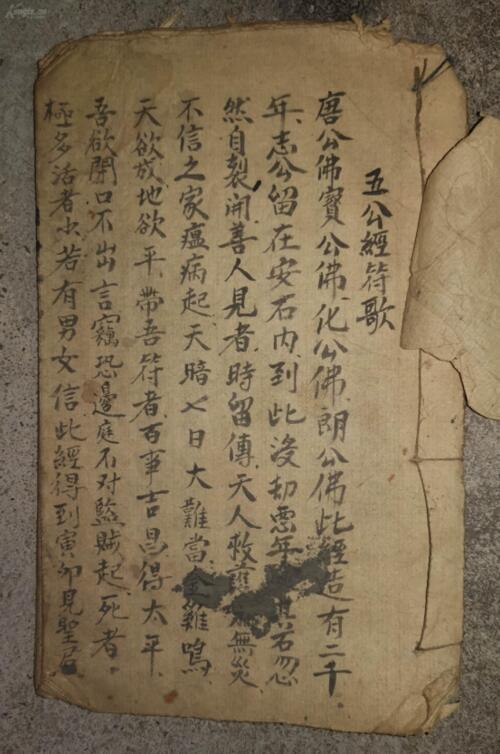 五公經符歌
唐公佛寶公佛化公佛朗公佛此經造有二千
年志公留在安石內到此沒劫惡年其石忽
然自裂開善人見者時留傳天人救護無災
不信之家瘟病起天暗七日大難當金雞鳴
天欲成地欲平帶吾符者百事吉昌得太平
吾欲開口不出言竊恐邊庭不对藍賊起死者
極多活者少若有男女信此經得到寅卯見聖君